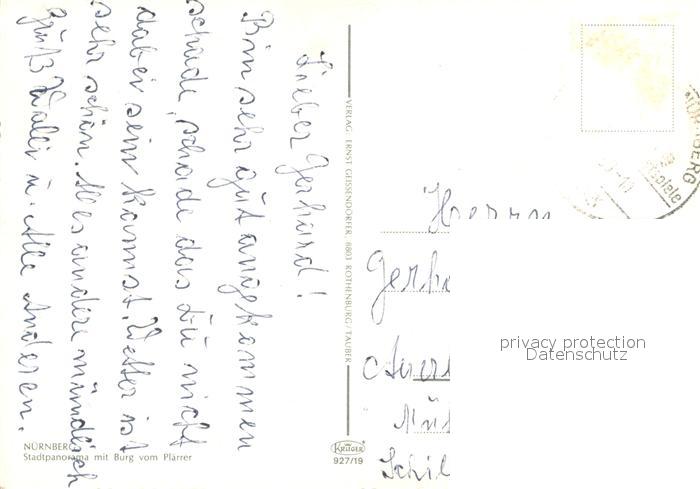 Lieber Gerhard!
Bin sehr gut angekommen
schade, schade das Du nicht
dabei sein kannst. Wetter ist
sehr schön. Alles andere mündlich
grüß Walli u. Alle Anderen.
NÜRNBERG
Stadtpanorama mit Burg vom Plärrer
VERLAG ERNST GEISSENDÖRFER, 8803 ROTHENBURG/TAUBER
KRÜGER
927/19
Herrn
Gerh
privacy protection
Datenschutz